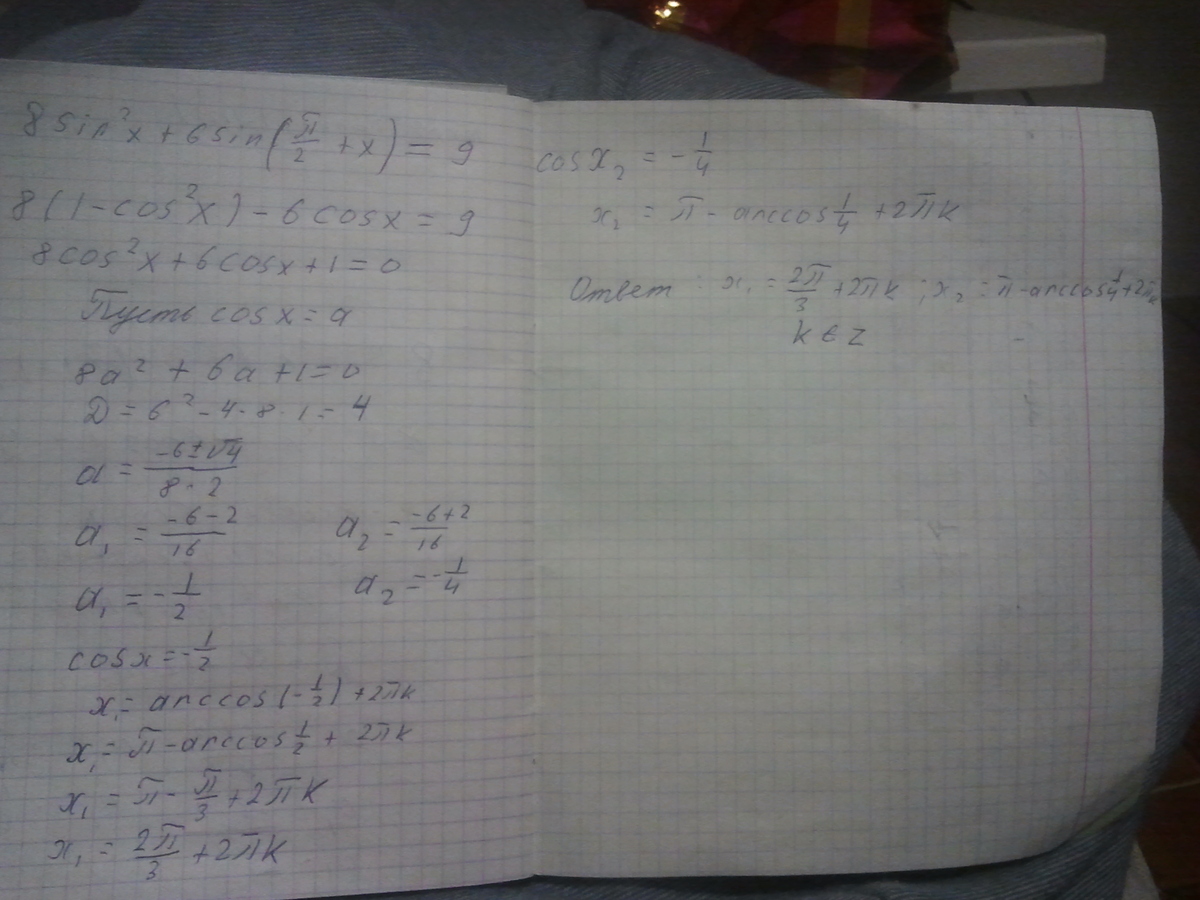 8 sin²x + 6 sin(π/2 + x) = 9
8(1 - cos²x) - 6 cos x = 9
8cos²x + 6 cosx + 1 = 0
Пусть cos x = a
8a² + 6a + 1 = 0
D = 6² - 4 · 8 · 1 = 4
a = (-6 ± √4)/(8 · 2)
a₁ = (-6 - 2)/16 a₂ = (-6 + 2)/16
a₁ = -1/2 a₂ = -1/4
cos x = -1/2
x₁ = arccos(-1/2) + 2πk
x₁ = π - arccos 1/2 + 2πk
x₁ = π - π/3 + 2πk
x₁ = 2π/3 + 2πk
cos x₂ = -1/4
x₂ = π - arccos 1/4 + 2πk
Ответ : x₁ = 2π/3 + 2πk ; x₂ = π - arccos 1/4 + 2πk
k ∈ Z